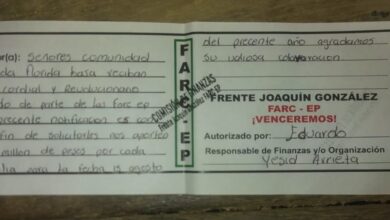 or(a): Señores comunidad
da Florida baja reciban
cordial y Revolucionario
do de parte de las Farc ep
presente notificacion es con
fin de solicitarles nos aporten
millon de pesos por cada
para la fecha 15 agosto
FARC - EP
COMISIÓN FINANZAS
del presente año agradamos
su valiosa colaboración
FRENTE JOAQUÍN GONZÁLEZ
FARC - EP
¡VENCEREMOS!
Autorizado por: Eduardo
Responsable de Finanzas y/o Organización
Yesid Arrieta